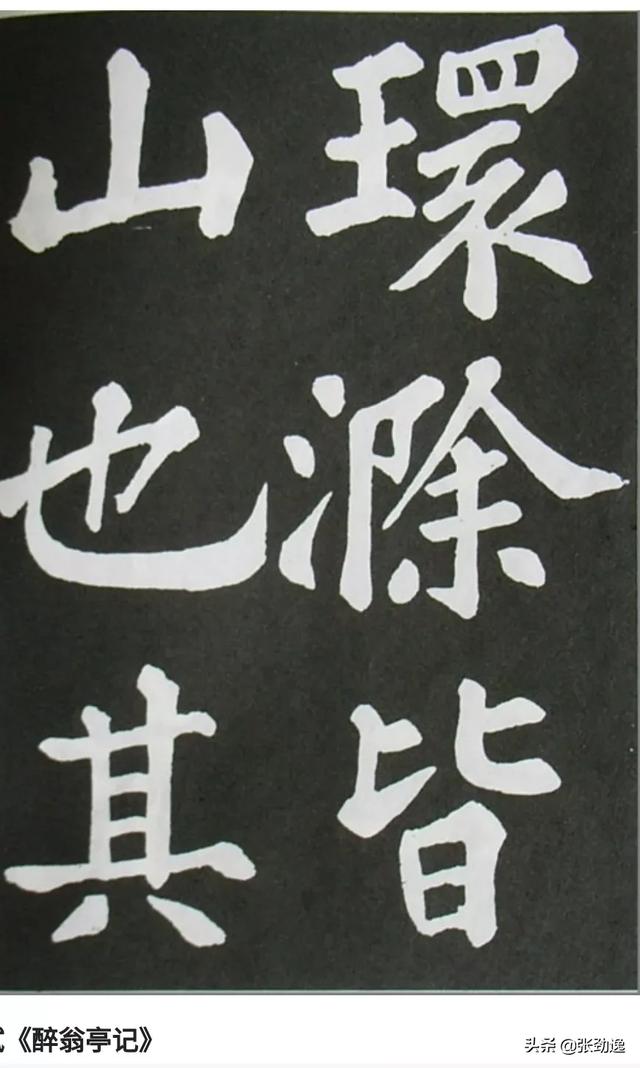 環滁皆
山也其
《醉翁亭记》
头条 @张劲逸